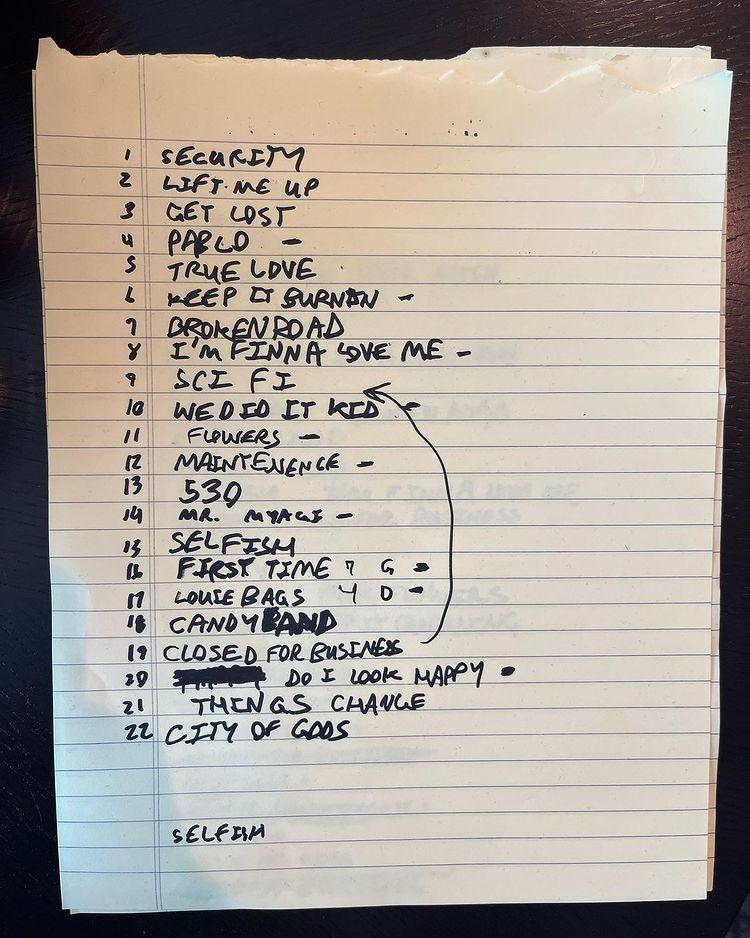 1 SECURITY
2 LIFT ME UP
3 GET LOST
4 PABLO -
5 TRUE LOVE
6 KEEP IT BURNIN -
7 BROKEN ROAD
8 I'M FINNA LOVE ME -
9 SCI FI
10 WE DID IT KID -
11 FLOWERS -
12 MAINTENENCE -
13 530
14 MR. MYAGI -
15 SELFISH
16 FIRST TIME 7 G -
17 LOUIE BAGS 4 D -
18 CANDYLAND
19 CLOSED FOR BUSINESS
20 DO I LOOK HAPPY -
21 THINGS CHANGE
22 CITY OF GODS
SELFISH